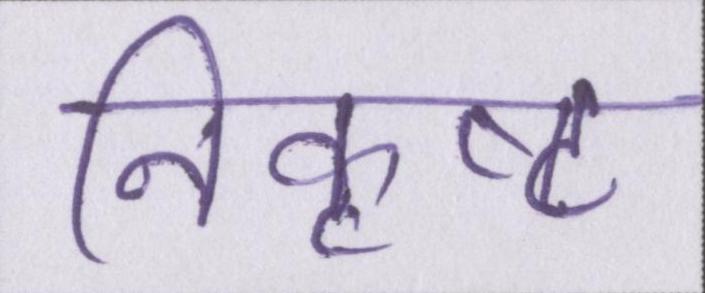 निकृष्ट